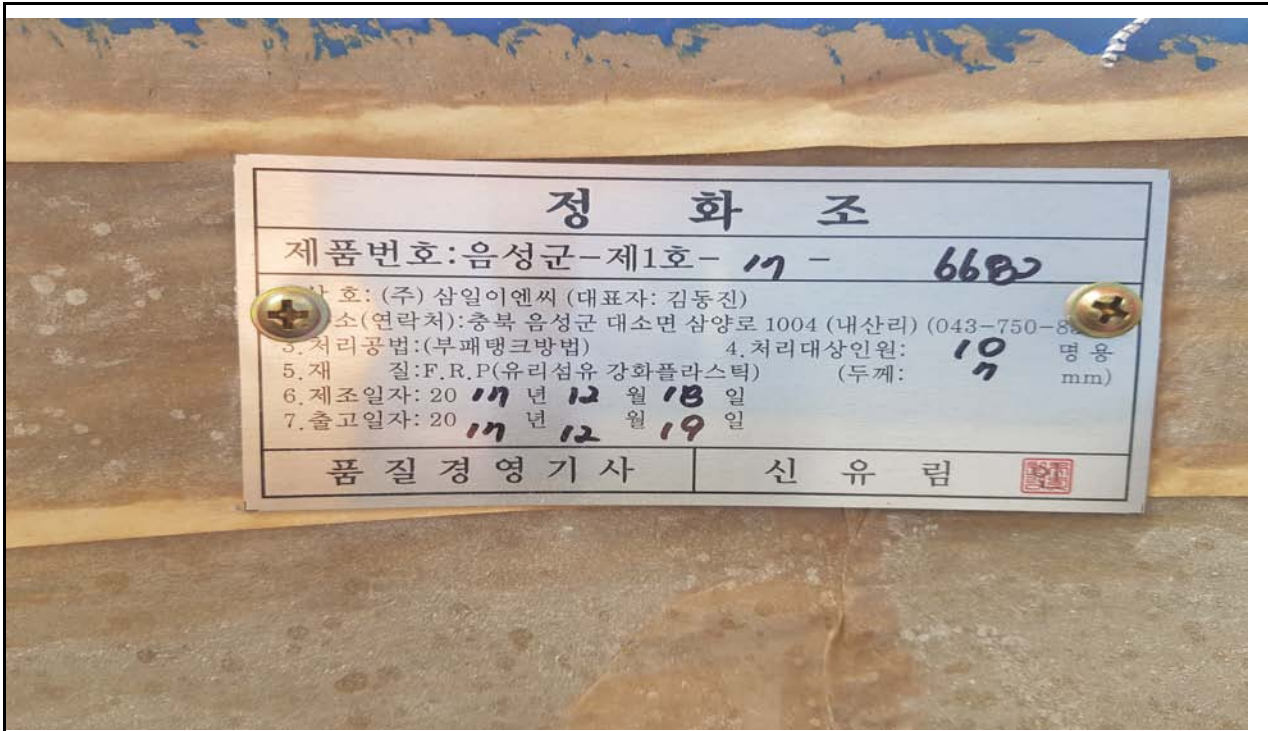 정 화 조
제품번호:음성군-제1호- 17 - 6680
호: (주) 삼일이엔씨 (대표자: 김동진)
소(연락처):충북 음성군 대소면 삼양로 1004 (내산리) (043-750-8
3.처리공법:(부패탱크방법) 4.처리대상인원: 10 명용
5.재 질:F.R.P(유리섬유 강화플라스틱) (두께: 7 mm)
6.제조일자: 20 17 년 12 월 18 일
7.출고일자: 20 17 년 12 월 19 일
품 질 경 영 기 사 신 유 림